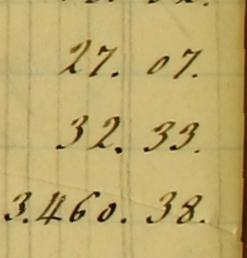 27. 07.
32. 33.
3.460. 38.